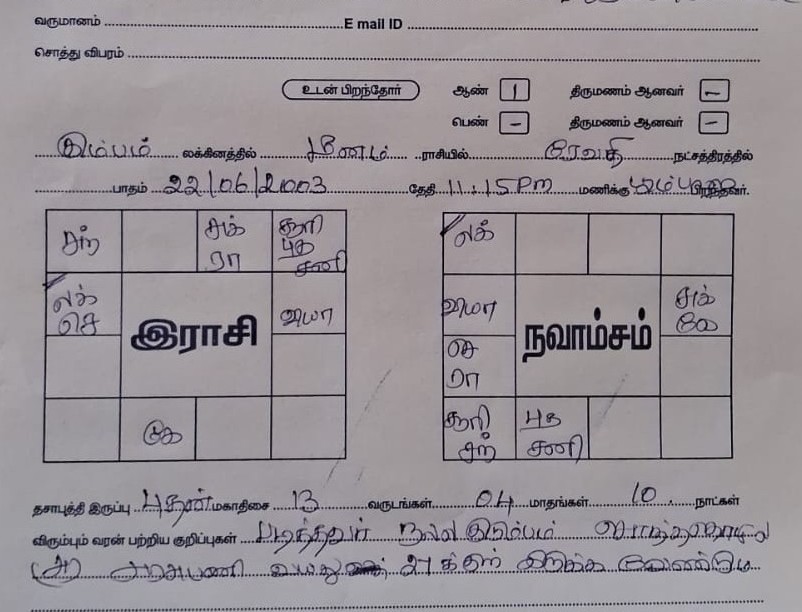 வருமானம் ........ E mail ID ........
சொத்து விபரம் ........
உடன் பிறந்தோர் ஆண் 1 திருமணம் ஆனவர் –
பெண் – திருமணம் ஆனவர் –
கும்பம் லக்கினத்தில் மீனம் ராசியில் ரேவதி நட்சத்திரத்தில்
பாதம் 22/06/2003 தேதி 11:15PM மணிக்கு பிறந்தவர்.
சந் சுக் ரா சூரி புத சனி
லக் செ இராசி வியா
கே
லக்
வியா நவாம்சம் சுக் கே
செ ரா
சூரி சந் புத சனி
தசாபுத்தி இருப்பு புதன் மகாதிசை 13 வருடங்கள் 04 மாதங்கள் 10 நாட்கள்
விரும்பும் வரன் பற்றிய குறிப்புகள் படித்தவர் நல்ல குடும்பம் சொந்ததொழில்
(அ) அரசுபணி வயது 27க்குள் இருக்க வேண்டும்